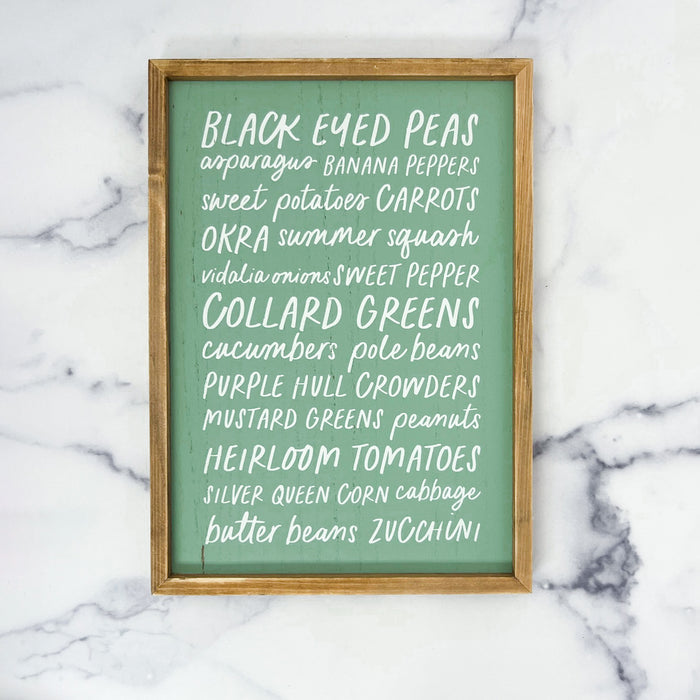 BLACK EYED PEAS
asparagus BANANA PEPPERS
sweet potatoes CARROTS
OKRA summer squash
vidalia onions SWEET PEPPER
COLLARD GREENS
cucumbers pole beans
PURPLE HULL CROWDERS
MUSTARD GREENS peanuts
HEIRLOOM TOMATOES
SILVER QUEEN CORN cabbage
butter beans ZUCCHINI